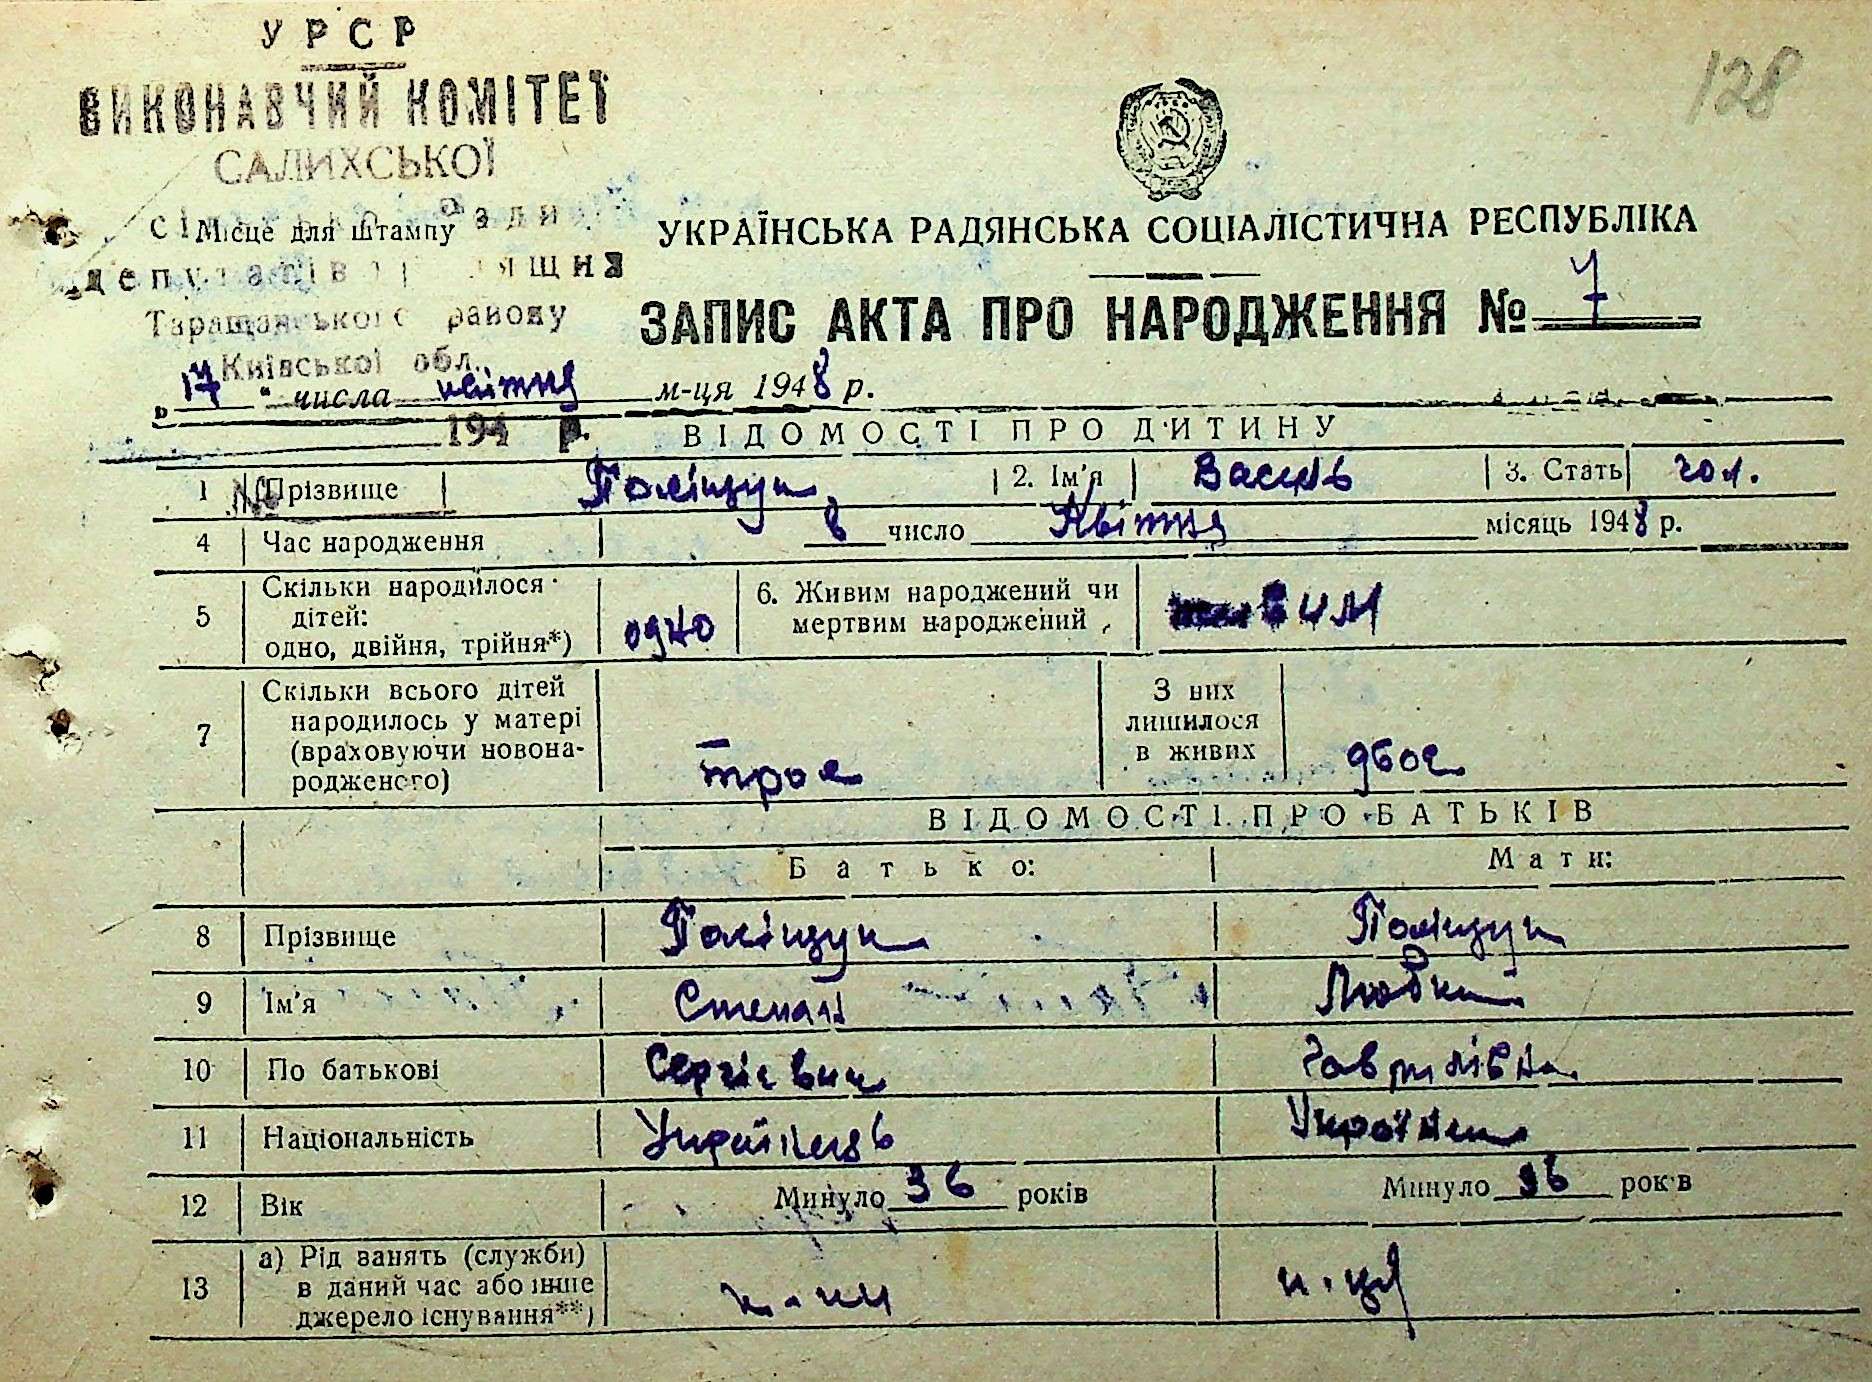 УРСР
ВИКОНАВЧИЙ КОМІТЕТ
САЛИХСЬКОЇ
128
Місце для штампу
депутатів трудящих
Таращанського району
Київської обл.
УКРАЇНСЬКА РАДЯНСЬКА СОЦІАЛІСТИЧНА РЕСПУБЛІКА
ЗАПИС АКТА ПРО НАРОДЖЕННЯ № 7
„17" числа квітня м-ця 1948 р.
194 р.
ВІДОМОСТІ ПРО ДИТИНУ
1 Прізвище Поліщук 2. Ім'я Василь 3. Стать чол.
4 Час народження 8 число Квітня місяць 1948 р.
5 Скільки народилося дітей: одно, двійня, трійня*) одно 6. Живим народжений чи мертвим народжений живим
7 Скільки всього дітей народилось у матері (враховуючи новонародженого) троє З них лишилося в живих двоє
ВІДОМОСТІ ПРО БАТЬКІВ
Батько: Мати:
8 Прізвище Поліщук Поліщук
9 Ім'я Степан Любка
10 По батькові Сергієвич Гаврилівна
11 Національність Українець Українка
12 Вік Минуло 36 років Минуло 36 років
13 а) Рід занять (служби) в даний час або інше джерело існування**) к-ик к-ця